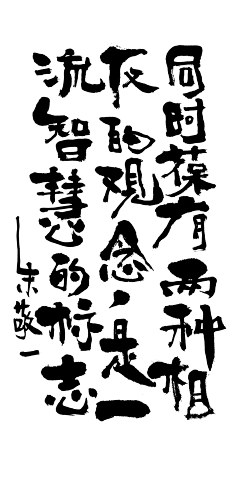 同时葆有两种相
反的观念，是一
流智慧的标志
—朱敬一